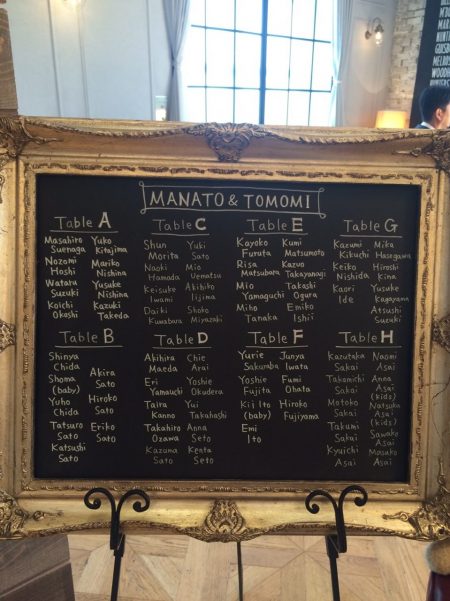 MANATO & TOMOMI
Table A
Masahiro Yuko
Suenaga Kitajima
Nozomi Mariko
Hoshi Nishina
Wataru Yusuke
Suzuki Nishina
Koichi Kazuki
Okoshi Takeda
Table C
Shun Yuki
Morita Sato
Naoki Mio
Hamada Uematsu
Keisuke Akihiko
Iwami Iijima
Daiki Shoko
Kuwabara Miyazaki
Table E
Kayoko Kumi
Furuta Matsumoto
Risa Kazuo
Matsubara Takayanagi
Mio Takashi
Yamaguchi Ogura
Miho Emiko
Tanaka Ishii
Table G
Kazumi Mika
Kikuchi Hasegawa
Keiko Hiroshi
Nishida Kina
Kaori Yusuke
Ide Kagayama
Atsushi
Suzuki
Table B
Shinya
Chida
Shoma Akira
(baby) Sato
Yuho Hiroko
Chida Sato
Tatsuro Eriko
Sato Sato
Katsushi
Sato
Table D
Akihira Chie
Maeda Arai
Eri Yoshie
Yamauchi Okudera
Taira Yui
Kanno Takahashi
Takahiro Anna
Ozawa Seto
Kazuma Kenta
Seto Seto
Table F
Yurie Junya
Sakuraba Iwata
Yoshie Fumi
Fujita Ohata
Kii Ito Hiroko
(baby) Fujiyama
Emi
Ito
Table H
Kazutaka Naomi
Sakai Asai
Takamichi Anna
Sakai Asai
(kids)
Motoko Natsuka
Sakai Asai
(kids)
Takumi Sawako
Sakai Asai
Kyuichi Masako
Asai Asai